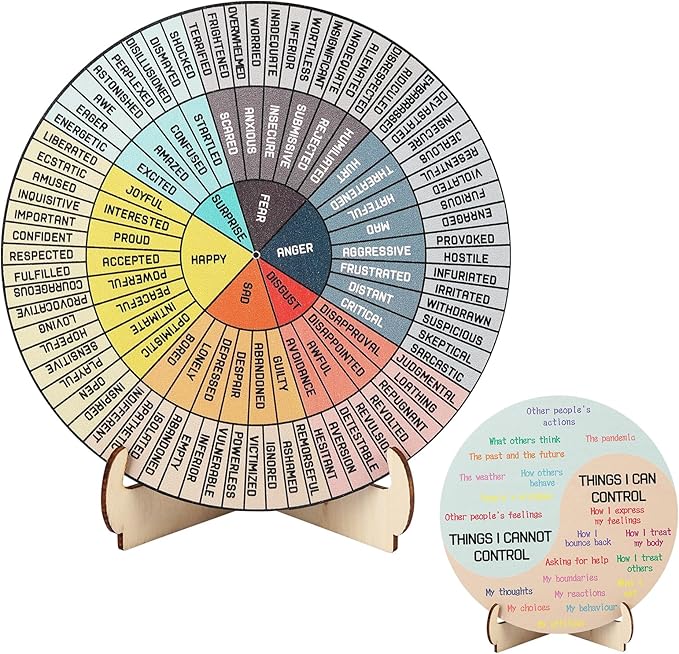 FEAR
ANGER
DISGUST
SAD
HAPPY
SURPRISE
SCARED
ANXIOUS
INSECURE
SUBMISSIVE
REJECTED
HUMILIATED
HURT
THREATENED
HATEFUL
MAD
AGGRESSIVE
FRUSTRATED
DISTANT
CRITICAL
DISAPPROVAL
DISAPPOINTED
AWFUL
AVOIDANCE
GUILTY
ABANDONED
DESPAIR
DEPRESSED
LONELY
BORED
OPTIMISTIC
INTIMATE
PEACEFUL
POWERFUL
ACCEPTED
PROUD
INTERESTED
JOYFUL
EXCITED
AMAZED
CONFUSED
STARTLED
TERRIFIED
FRIGHTENED
OVERWHELMED
WORRIED
INADEQUATE
INFERIOR
WORTHLESS
INSIGNIFICANT
INADEQUATE
ALIENATED
DISRESPECTED
RIDICULED
EMBARRASSED
DEVASTATED
INSECURE
JEALOUS
RESENTFUL
VIOLATED
FURIOUS
ENRAGED
PROVOKED
HOSTILE
INFURIATED
IRRITATED
WITHDRAWN
SUSPICIOUS
SKEPTICAL
SARCASTIC
JUDGMENTAL
LOATHING
REPUGNANT
REVOLTED
REVULSION
DETESTABLE
AVERSION
HESITANT
REMORSEFUL
ASHAMED
IGNORED
VICTIMIZED
POWERLESS
VULNERABLE
INFERIOR
EMPTY
ABANDONED
ISOLATED
APATHETIC
INDIFFERENT
INSPIRED
OPEN
PLAYFUL
SENSITIVE
HOPEFUL
LOVING
PROVOCATIVE
COURAGEOUS
FULFILLED
RESPECTED
CONFIDENT
IMPORTANT
INQUISITIVE
AMUSED
ECSTATIC
LIBERATED
ENERGETIC
EAGER
AWE
ASTONISHED
PERPLEXED
DISILLUSIONED
DISMAYED
SHOCKED
Other people's
actions
What others think
The pandemic
The past and the future
The weather
How others
behave
Other people's feelings
THINGS I CANNOT
CONTROL
THINGS I CAN
CONTROL
How I express
my feelings
How I
bounce back
How I treat
my body
Asking for help
How I treat
others
My boundaries
My thoughts
My reactions
My choices
My behaviour